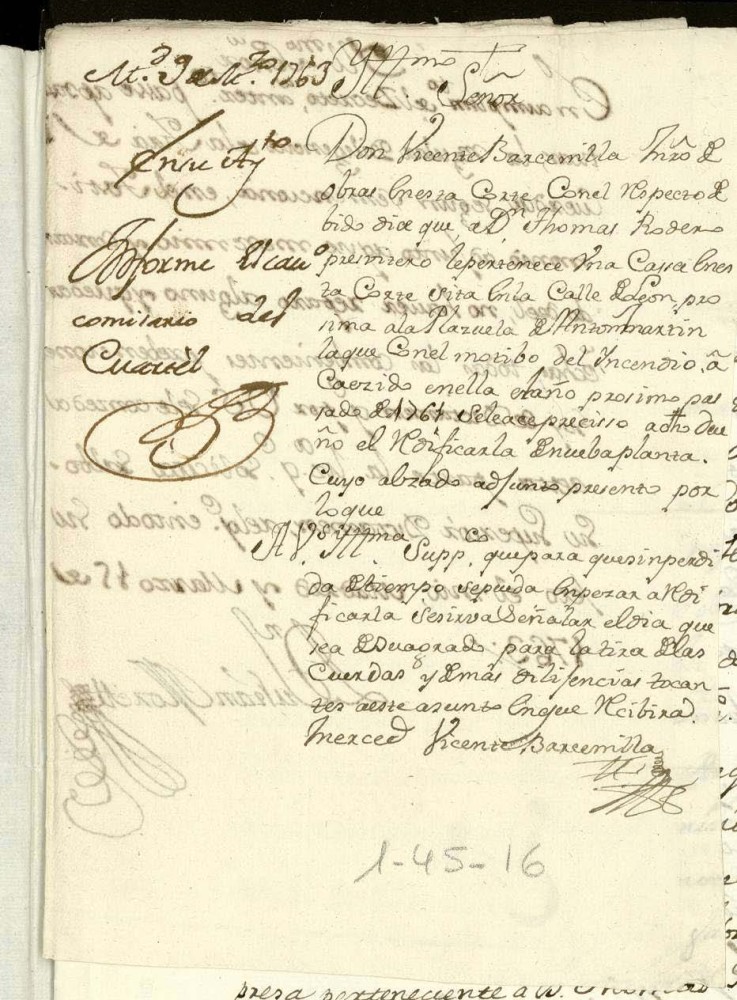 M.d 9 de M.zo 1763
Yllmo
Señor
En su Ay.to
Informe El cav.o
comisario del
Cuartel
Don Vicente Barcenilla Mro D
obras en esta Corte Con el Respecto D
bido dice que, a Dn Thomas Rodero
presvitero le pertenece Una Cassa En es
ta Corte sita En la Calle D Leon, pro
sima a la Plazuela D Anton martin
la que Con el motibo del Yncendio, a
Caezido en ella el año prosimo pas
sado D 1761 se le ace precisso a dho due
ño el Rdificarla D nueba planta.
Cuyo alzado adjunto presento por
lo que
A V.S. Yllma Supp.co que para que sin perdi
da D tiempo se pueda Enpezar a Rdi
ficarla se sirva Señalar el dia que
sea D su agrado para la tira D las
Cuerdas y Dmás dilijencias tocan-
tes a este asunto En que Rcibira
merced Vicente Barcenilla
1-45-16
presa perteneciente a D. Thomas